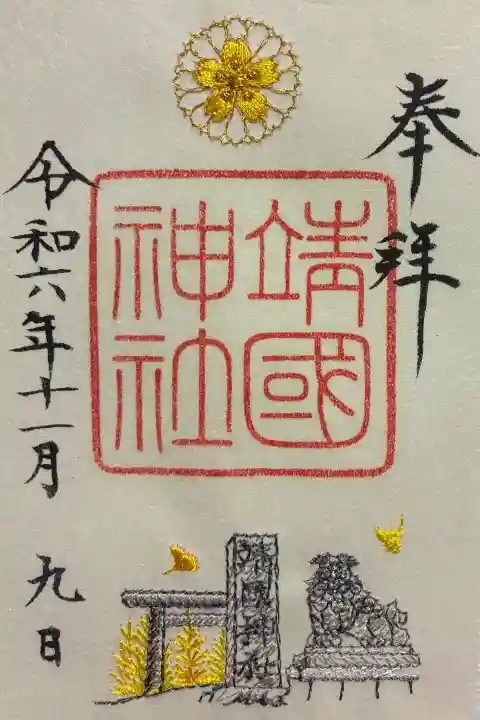 奉拝
靖國
神社
令和六年十一月九日
靖國神社